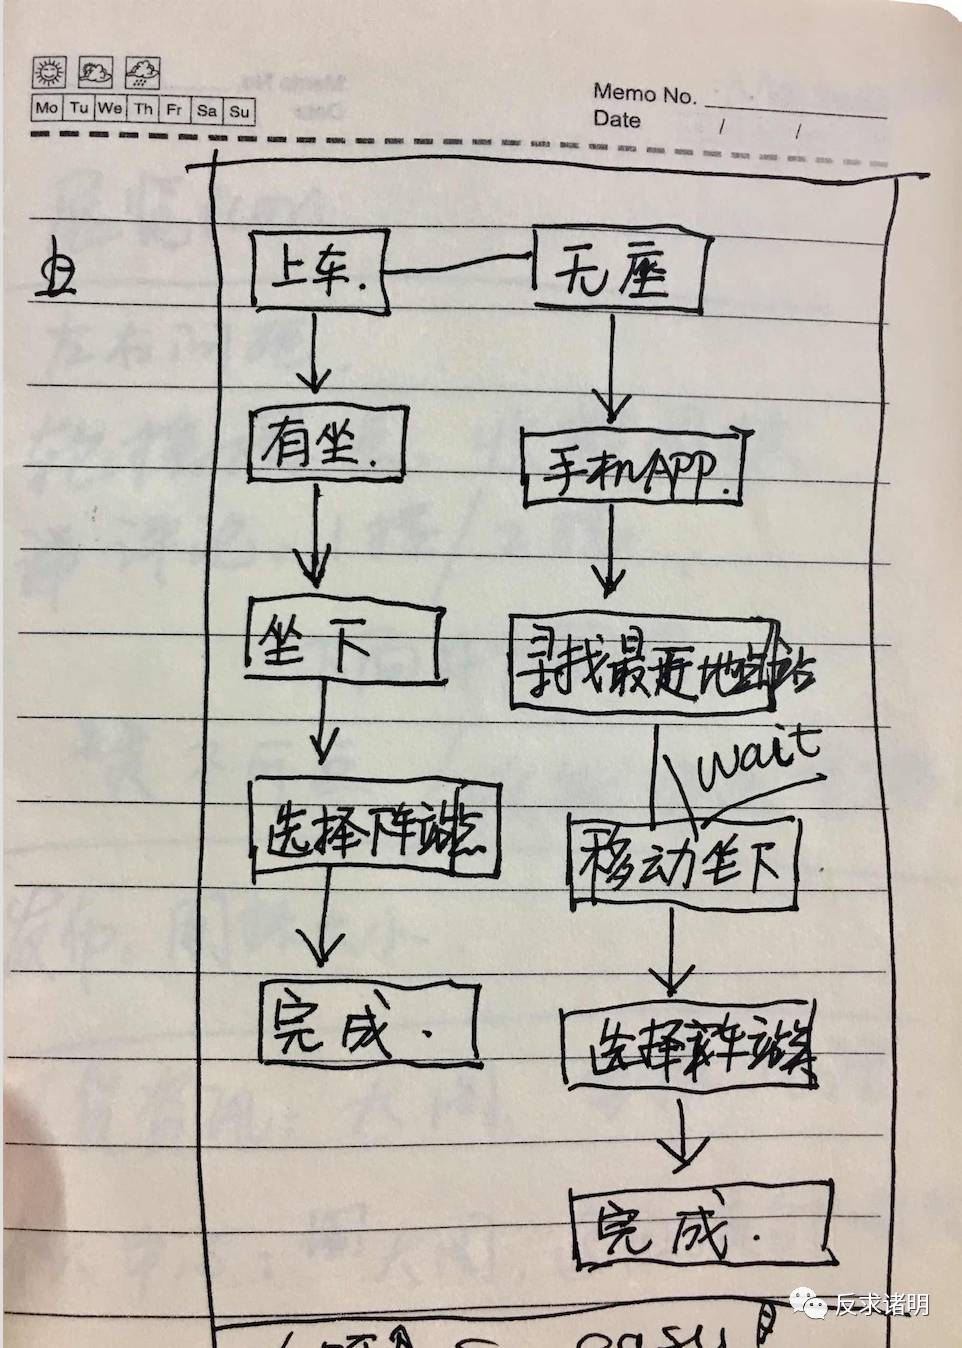 Memo No.
Mo Tu We Th Fr Sa Su
Date / /
上车. 无座
有坐. 手机APP.
坐下 寻找最近地铁站
wait
选择下车站点 移动坐下
完成. 选择
完成.
easy
反求诸明